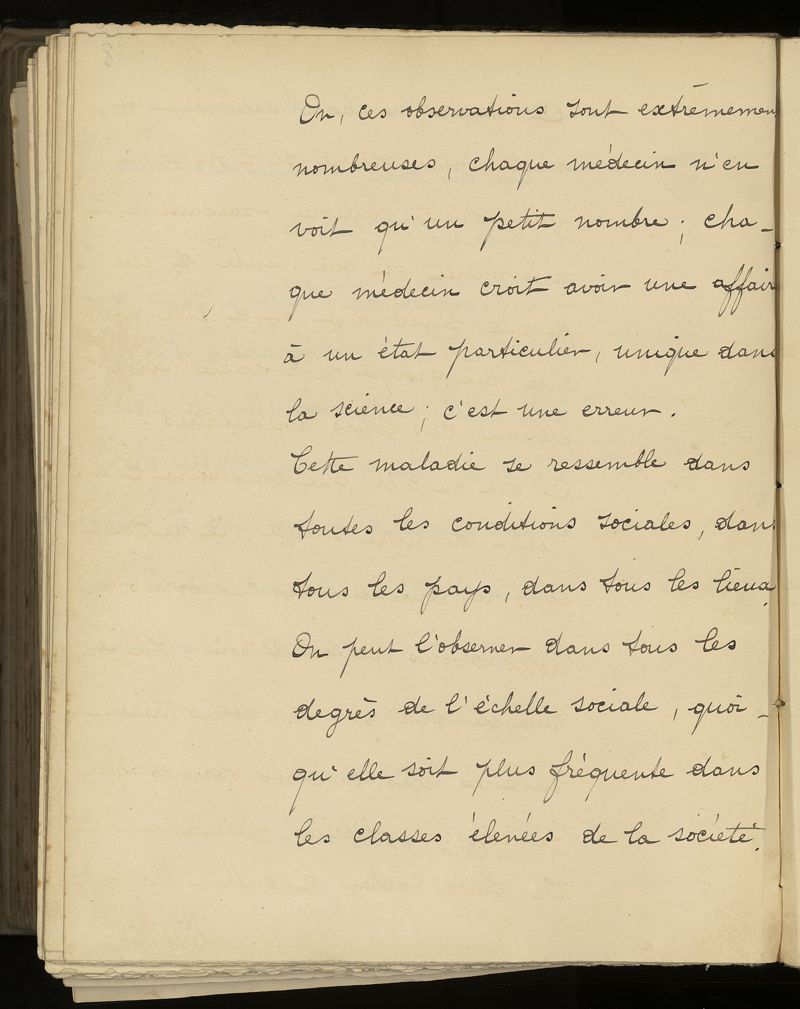 On, ces observations sont extrêmemen
nombreuses, chaque médecin n'en
voit qu'un petit nombre; cha-
que médecin croit avoir une affair
à un état particulier, unique dans
la science; c'est une erreur.
Cette maladie se ressemble dans
toutes les conditions sociales, dans
tous les pays, dans tous les lieux.
On peut l'observer dans tous les
degrès de l'échelle sociale, quoi-
qu'elle soit plus fréquente dans
les classes élevées de la société.